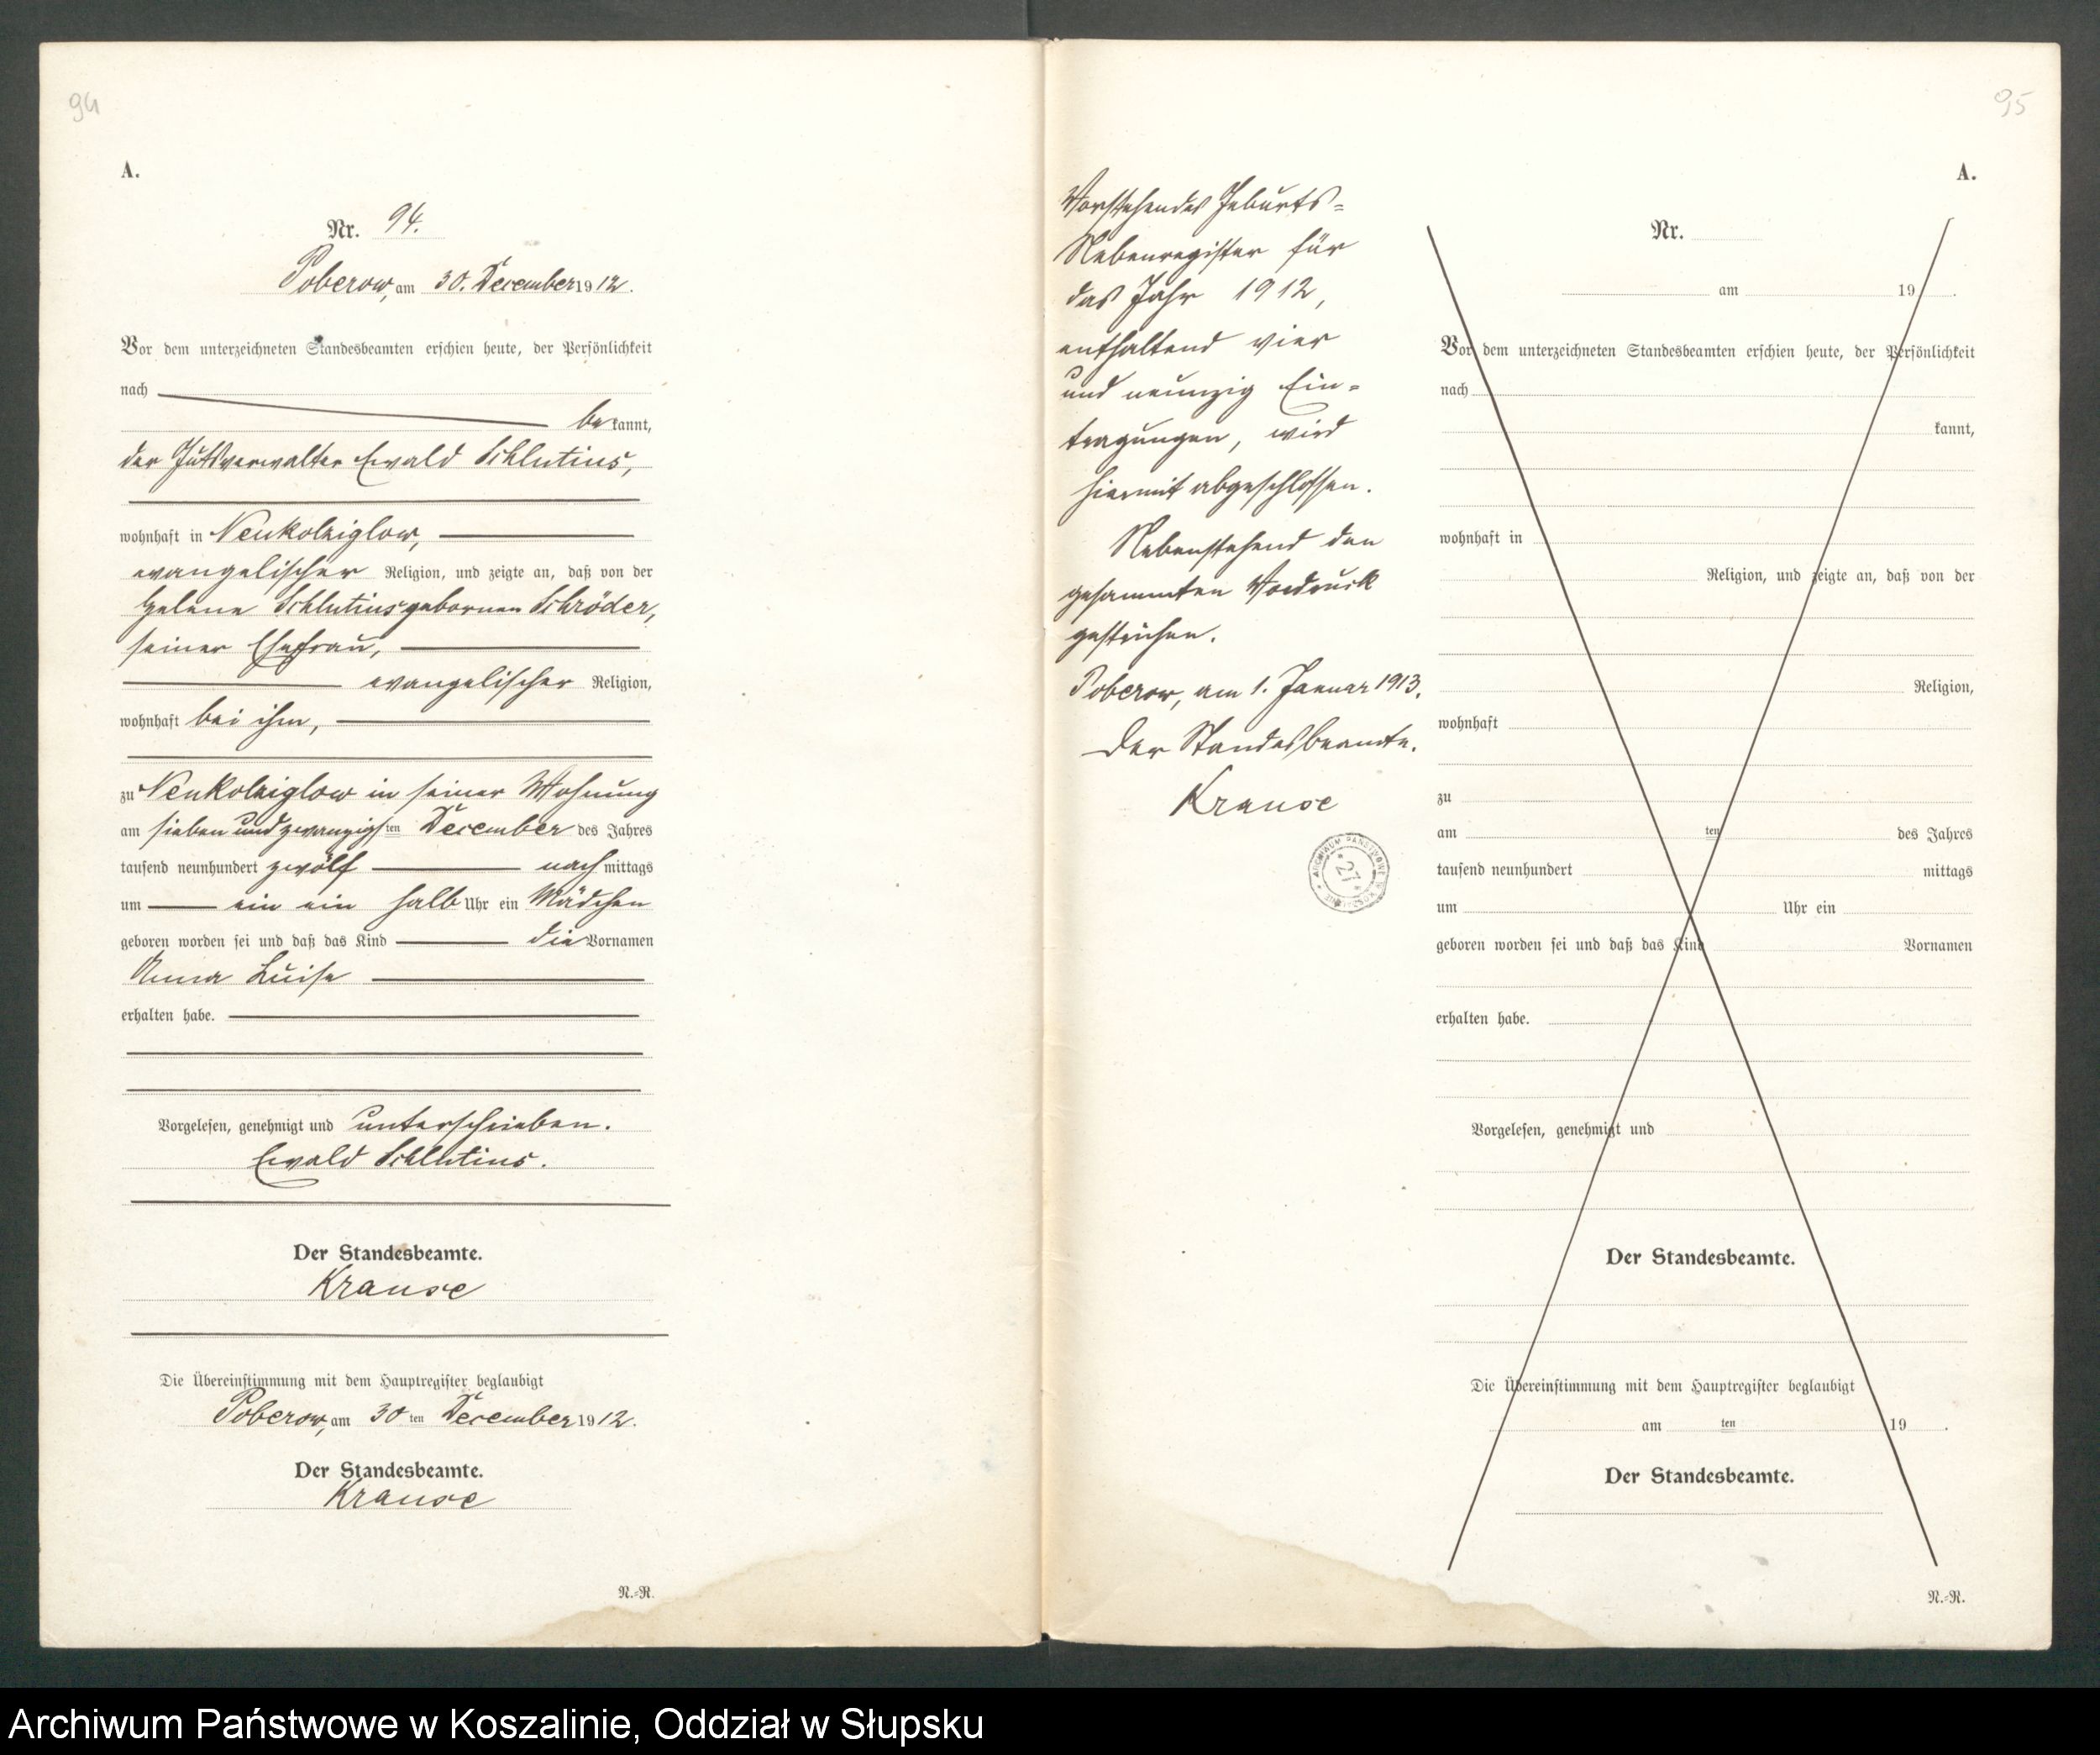 94
A.
Nr. 94.
Poberow, am 30. December 1912.
Vor dem unterzeichneten Standesbeamten erschien heute, der Persönlichkeit
nach
bekannt,
der Gutsverwalter Ewald Schlutius,
wohnhaft in Neukolziglow,
evangelischer Religion, und zeigte an, daß von der
Helene Schlutius gebornen Schröder,
seiner Ehefrau,
evangelischer Religion,
wohnhaft bei ihm,
zu Neukolziglow in seiner Wohnung
am sieben und zwanzigsten December des Jahres
tausend neunhundert zwölf nachmittags
um ein ein halb Uhr ein Mädchen
geboren worden sei und daß das Kind die Vornamen
Anna Luise
erhalten habe.
Vorgelesen, genehmigt und unterschrieben.
Ewald Schlutius.
Der Standesbeamte.
Krause
Die Übereinstimmung mit dem Hauptregister beglaubigt
Poberow, am 30ten December 1912.
Der Standesbeamte.
Krause
N.-R.
Vorstehendes Geburts-
Nebenregister für
das Jahr 1912,
enthaltend vier
und neunzig Ein-
tragungen, wird
hiermit abgeschlossen.
Nebenstehend den
gesammten Vordruck
gestrichen.
Poberow, am 1. Januar 1913.
Der Standesbeamte.
Krause
ARCHIWUM PAŃSTWOWE W
27
95
A.
Nr.
am 19 .
Vor dem unterzeichneten Standesbeamten erschien heute, der Persönlichkeit
nach
kannt,
wohnhaft in
Religion, und zeigte an, daß von der
Religion,
wohnhaft
zu
am ten des Jahres
tausend neunhundert mittags
um Uhr ein
geboren worden sei und daß das Kind Vornamen
erhalten habe.
Vorgelesen, genehmigt und
Der Standesbeamte.
Die Übereinstimmung mit dem Hauptregister beglaubigt
am ten 19 .
Der Standesbeamte.
N.-R.
Archiwum Państwowe w Koszalinie, Oddział w Słupsku